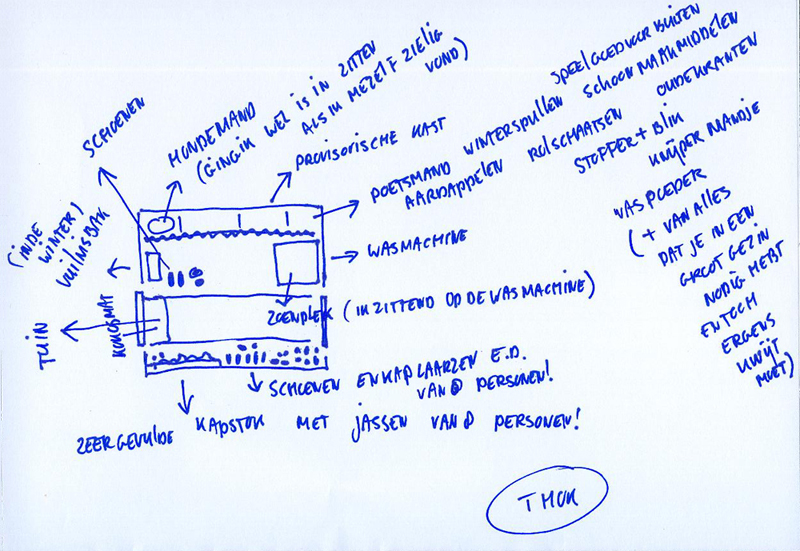 SCHOENEN
HONDEMAND
(GING IK WEL IS IN ZITTEN
ALS IK MEZELF ZIELIG
VOND)
PROVISORISCHE KAST
SPEELGOED VOOR BUITEN
POETSMAND WINTERSPULLEN SCHOONMAAKMIDDELEN
AARDAPPELEN ROLSCHAATSEN OUDE KRANTEN
STOFFER + BLIK
KNIJPERMANDJE
WASPOEDER
(+ VAN ALLES
DAT JE IN EEN
GROOT GEZIN
NODIG HEBT
EN TOCH
ERGENS
KWIJT
MOET)
(IN DE
WINTER)
VUILNISBAK
WASMACHINE
ZOENPLEK (IK ZITTEND OP DE WASMACHINE)
TUIN
KOKOSMAT
SCHOENEN EN KAPLAARZEN E.D.
VAN 8 PERSONEN!
ZEER GEVULDE KAPSTOK MET JASSEN VAN 8 PERSONEN!